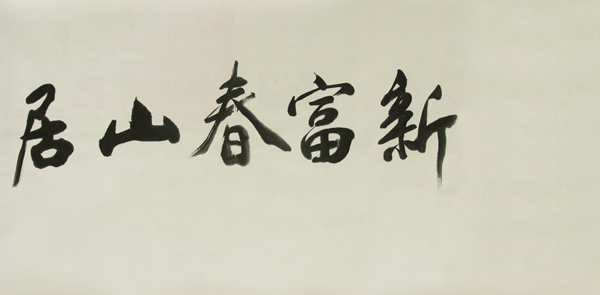 新富春山居